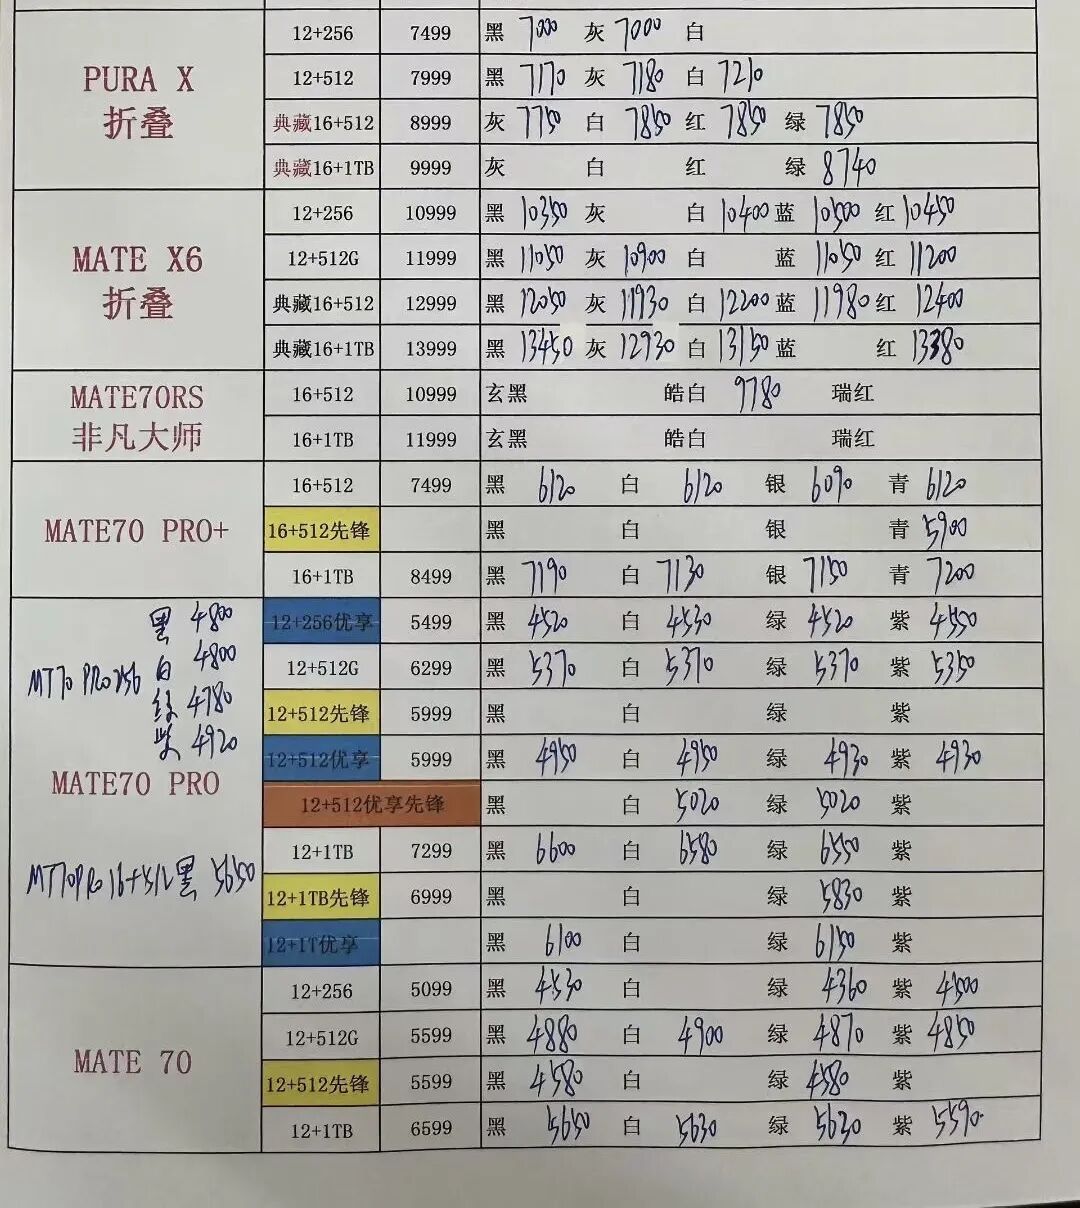 12+256 7499 黑 7000 灰 7000 白
PURA X
折叠
12+512 7999 黑 7170 灰 7180 白 7210
典藏16+512 8999 灰 7750 白 7850 红 7850 绿 7850
典藏16+1TB 9999 灰 白 红 绿 8740
MATE X6
折叠
12+256 10999 黑 10350 灰 白 10400 蓝 10500 红 10450
12+512G 11999 黑 11050 灰 10900 白 蓝 11050 红 11200
典藏16+512 12999 黑 12050 灰 11930 白 12200 蓝 11980 红 12400
典藏16+1TB 13999 黑 13450 灰 12930 白 13150 蓝 红 13380
MATE70RS
非凡大师
16+512 10999 玄黑 皓白 9780 瑞红
16+1TB 11999 玄黑 皓白 瑞红
MATE70 PRO+
16+512 7499 黑 6120 白 6120 银 6090 青 6120
16+512先锋 黑 白 银 青 5900
16+1TB 8499 黑 7190 白 7130 银 7150 青 7200
MT70 PRO256
黑 4800
白 4800
绿 4780
紫 4920
MATE70 PRO
MT70PRO 16+512 黑 5650
12+256优享 5499 黑 4520 白 4530 绿 4520 紫 4550
12+512G 6299 黑 5370 白 5370 绿 5370 紫 5350
12+512先锋 5999 黑 白 绿 紫
12+512优享 5999 黑 4950 白 4950 绿 4930 紫 4930
12+512优享先锋 黑 白 5020 绿 5020 紫
12+1TB 7299 黑 6600 白 6580 绿 6550 紫
12+1TB先锋 6999 黑 白 绿 5830 紫
12+1T优享 黑 6100 白 绿 6150 紫
MATE 70
12+256 5099 黑 4530 白 绿 4360 紫 4500
12+512G 5599 黑 4880 白 4900 绿 4870 紫 4850
12+512先锋 5599 黑 4580 白 绿 4580 紫
12+1TB 6599 黑 5650 白 5630 绿 5630 紫 5590